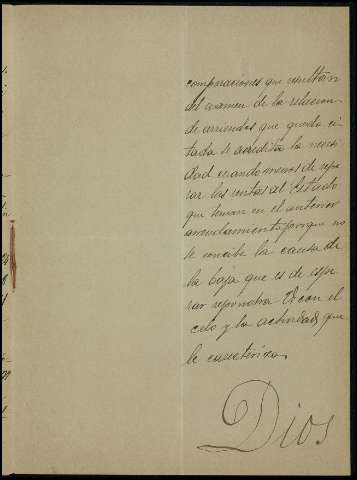 comparaciones que resultaran
del examen de la relacion
de arriendos que queda ci-
tada se acredita la necesi
dad cuando menos de repa
rar las rentas al Estado
que tenian en el anterior
arrendamiento porque no
se concibe la causa de
la baja que es de espe
rar repondra V. con el
celo y la actividad que
le caracteriza.
Dios